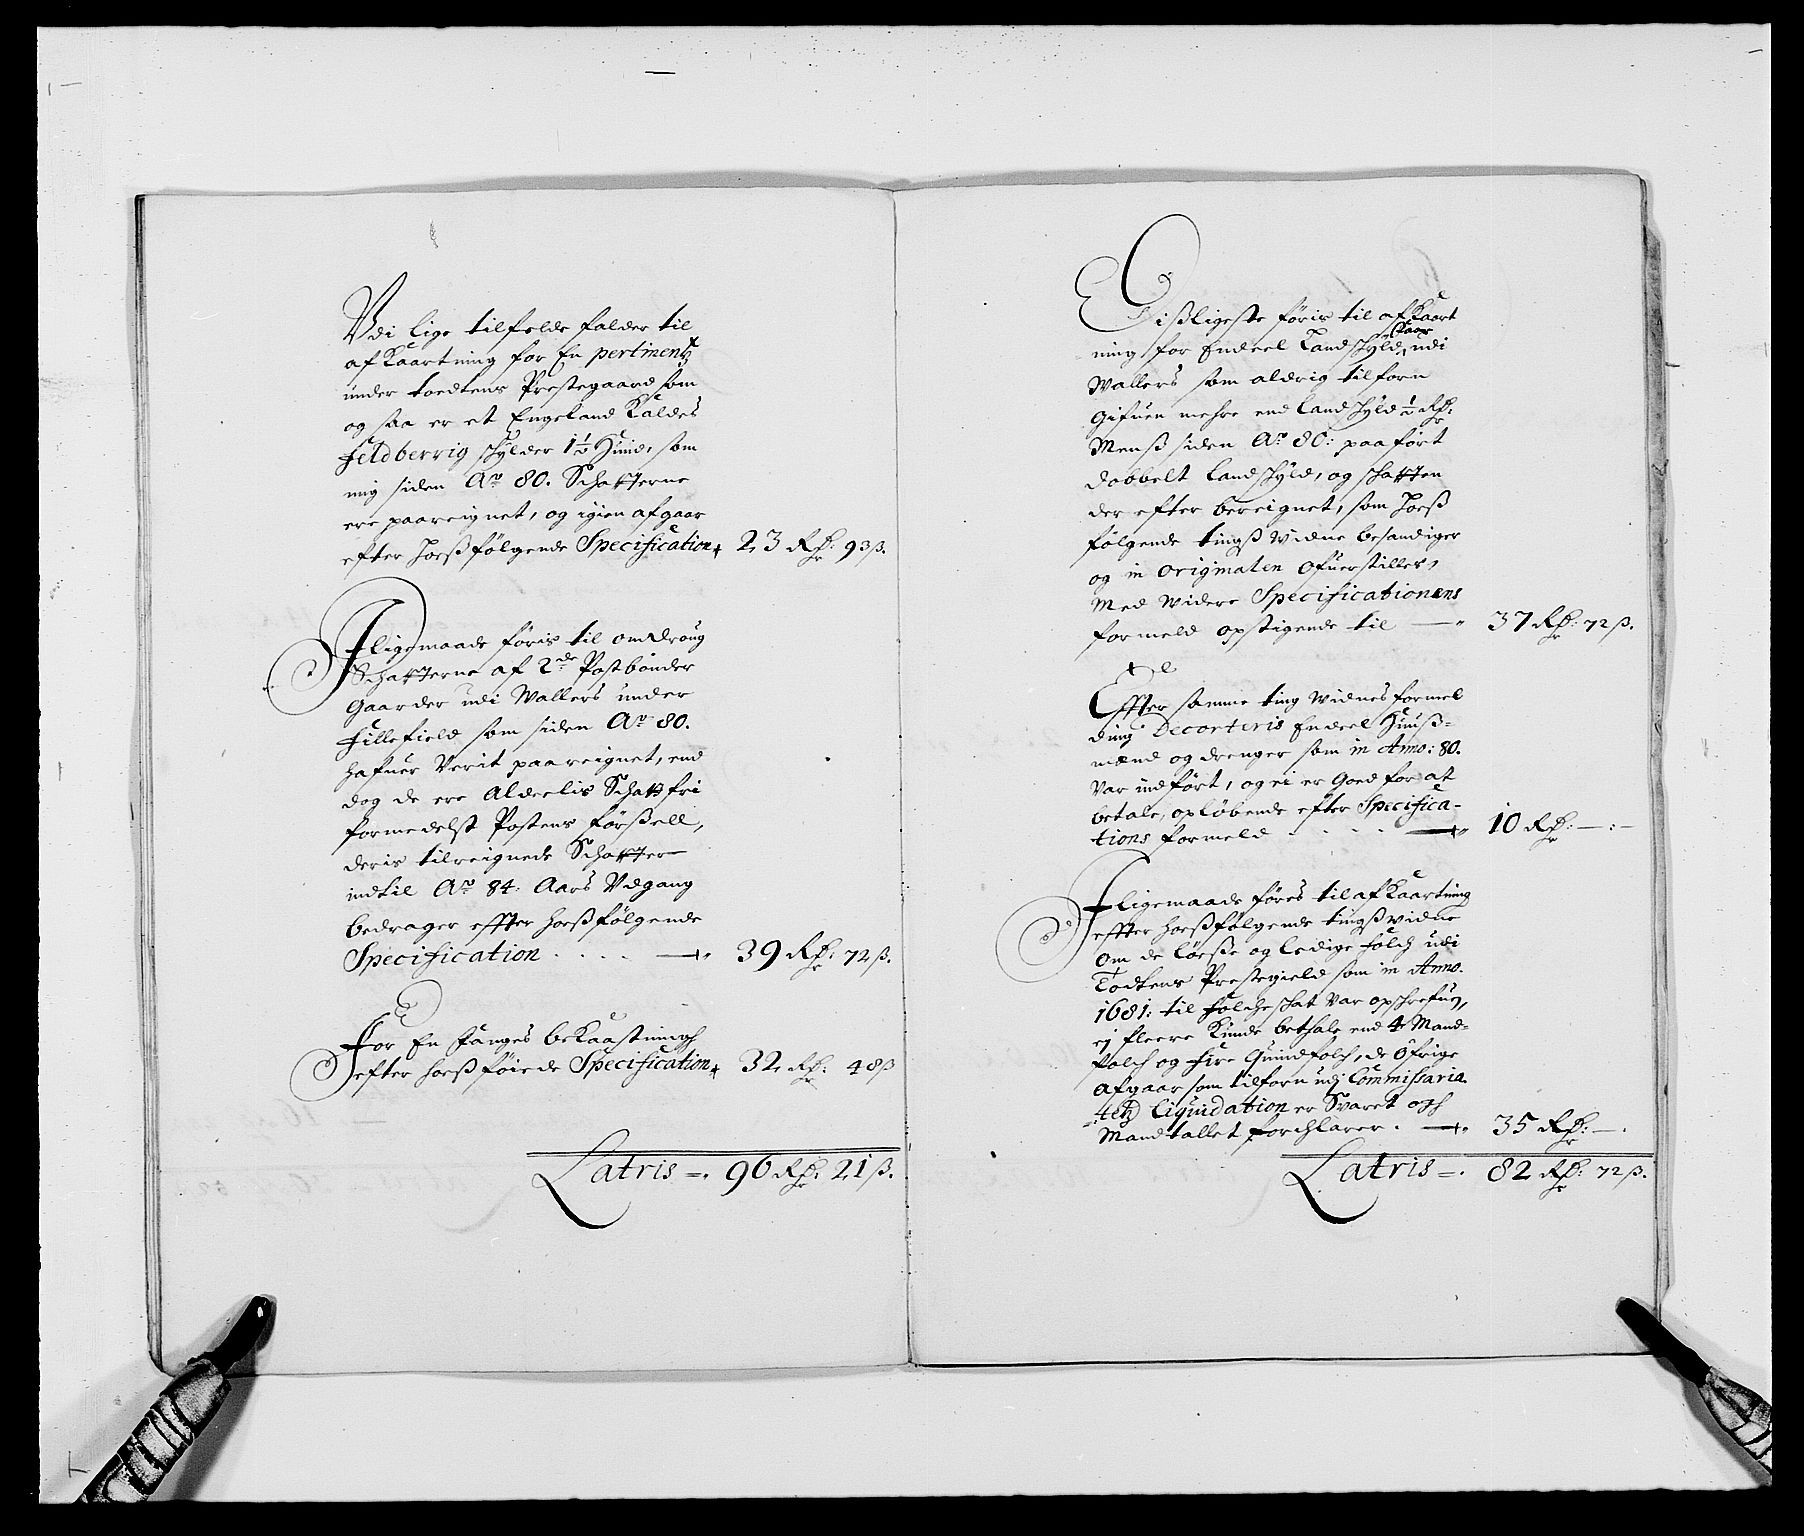 Udi lige tilfelde falder til
afKaartning for En pertinentz
under toedtens Prestegaard som
og saa er et Engeland Kaldes
Feldberrig schylder 1½ Huud, som
mig siden Ao 80. Schatterne
ere paareignet, og igien afgaar
efter hoesfølgende Specification 23 Rdr: 93 ß.
Iligemaade føris til omdroug
Schatterne af 2de Postbønder
Gaarder udi Wallers under
Fillefield som siden Ao 80.
hafuer Verit paareignet, end
dog de ere Aldeelis Schattfri
formedelst Postens førsell,
deris tilreignede Schatter
indtil Ao 84. Aars Udgang
bedrager effter hoesfølgende
Specification . . . . 39 Rdr: 72 ß.
For En Fanges beKaastningh
efter hoesføiede Specification 32 Rdr: 48 ß
Latris =. 96 Rdr: 21 ß.
Dißligeste føris til afKaart
ning for Endeel Landschyld Kaar udi
Wallers som aldrig tilforn
Gifuen mehre end Landschyld ½ Rdr:
Menß siden Ao 80: paaført
dobbelt Landschyld, og schatten
der efter bereignet, som hoeß
følgende tingßwidne besandiger
og in originalen Ofuerstilles,
Med widere Specificationens
formeld opstigende til — 37 Rdr: 72 ß.
Effter samme tingwidnes formel
ding Decorteris Endeel Huuß-
mænd og drenger som in Anno: 80.
var indført, og ei er Goed for at
betale, opløbende efter Specifica-
tions formeld . . . . 10 Rdr: — : —
Iligemaade føres til afKaartning
effter hoesfølgende tingßwidne
om de Løesße og Ledige folch udi
Todtens Prestegield som in Anno.
1681: til folcheschat var opschrefuen,
ej fleere Kunde bethale end 4 Mand-
folch og fire Quindfolch, de Øfrige
afgaar som tilforn udj Commissaria-
tetz Liquidation er Svaret och
Mandtallet forchlarer. 35 Rdr: —.
Latris =. 82 Rdr: 72 ß.